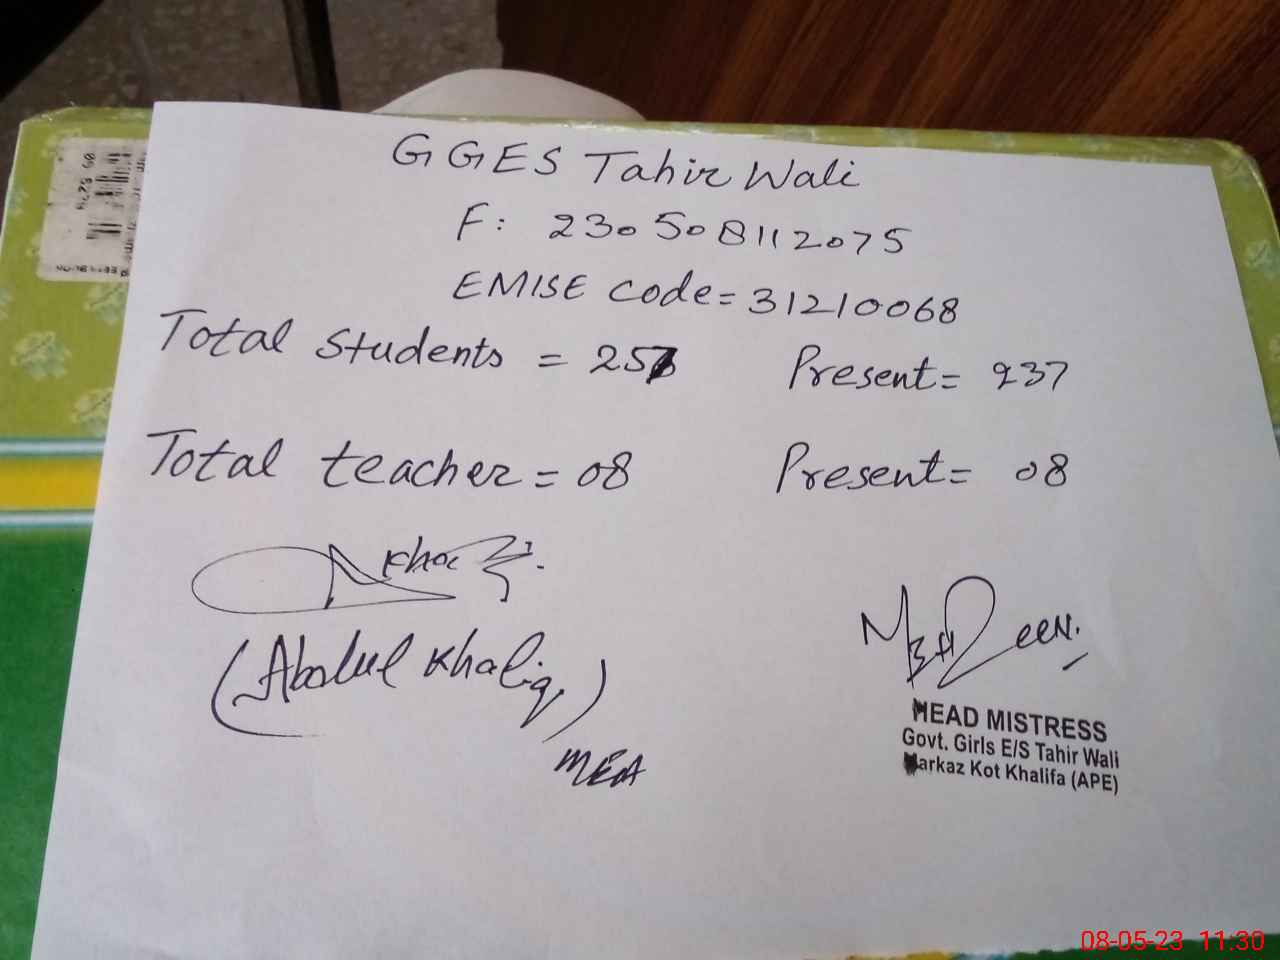 GGES Tahir Wali
F: 230508112075
EMISE code = 31210068
Total students = Present = 237
Total teacher = 08 Present = 08
(Abdul Khaliq)
MEA
HEAD MISTRESS
Govt. Girls E/S Tahir Wali
Markaz Kot Khalifa (APE)
08-05-23 11:30